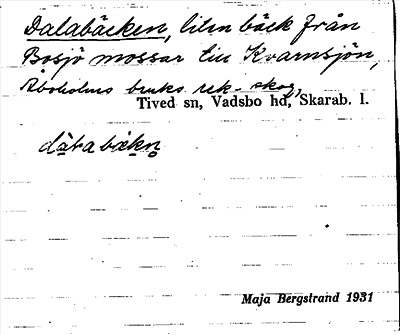 Dalabäcken, liten bäck från
Bosjö mossar till Kvarnsjön,
Åboholms bruks rek. skog,
Tived sn, Vadsbo hd, Skarab. l.
dạ̈ḷa bäkṇ
Maja Bergstrand 1931